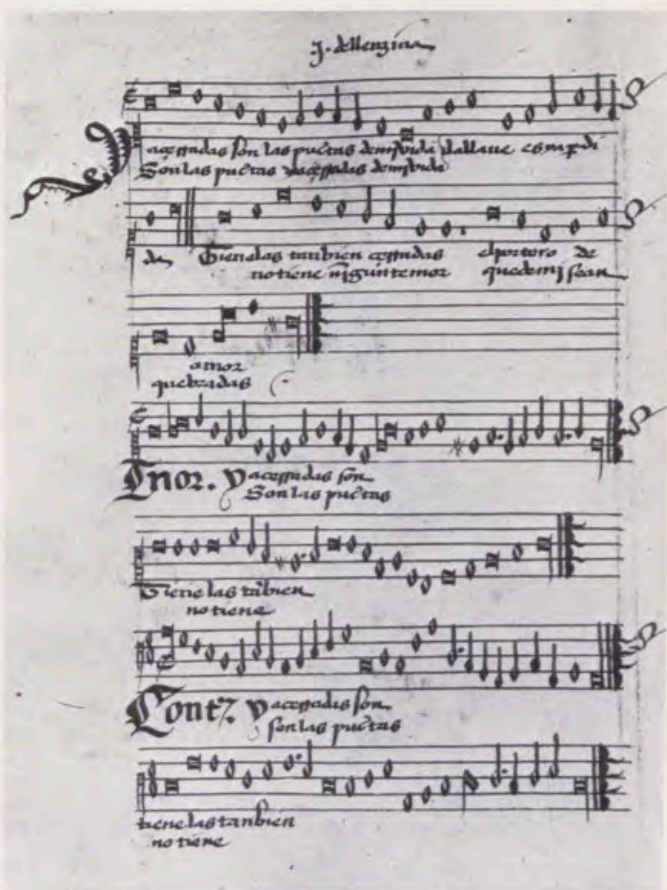 J. dellenzina
Ya çerradas son las puertas de mi vida y la llave es ya perdi
Son las puertas ya çerradas de mi vida
da Tienelas tan bien cerradas el portero de
no tiene ningun temor que de mi sean
amor
quebradas
Tenor. Ya cerradas son
Son las puertas
Tiene las tābien
no tiene
Contra Ya cerradas son
son las puertas
tiene las tanbien
no tiene